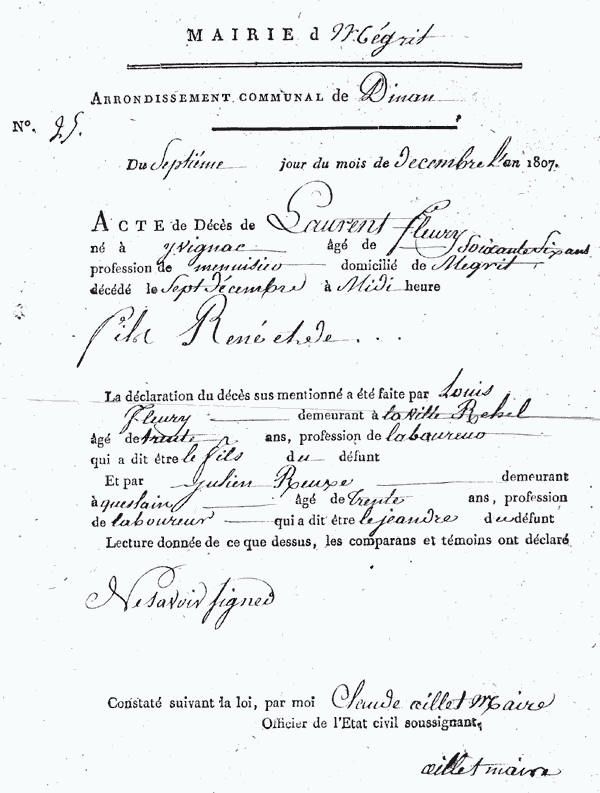 MAIRIE d Mégrit
ARRONDISSEMENT COMMUNAL de Dinan
N°. 25.
Du Septiéme jour du mois de decembre l'an 1807.
ACTE de Décès de Laurent fleury
né à yvignac âgé de Soixante Six ans
profession de menuisier domicilié de Mégrit
décédé le Sept décembre à Midi heure
fils René et de . . .
La déclaration du décès sus mentionné a été faite par Louis
fleury demeurant à la ville Rehel
âgé de trente ans, profession de laboureur
qui a dit être le fils du défunt
Et par Julien demeurant
à âgé de trente ans, profession
de laboureur qui a dit être le jeandre du défunt
Lecture donnée de ce que dessus, les comparans et témoins ont déclaré
Ne savoir signer
Constaté suivant la loi, par moi Claude aillet Maire
Officier de l'Etat civil soussignant,
aillet maire